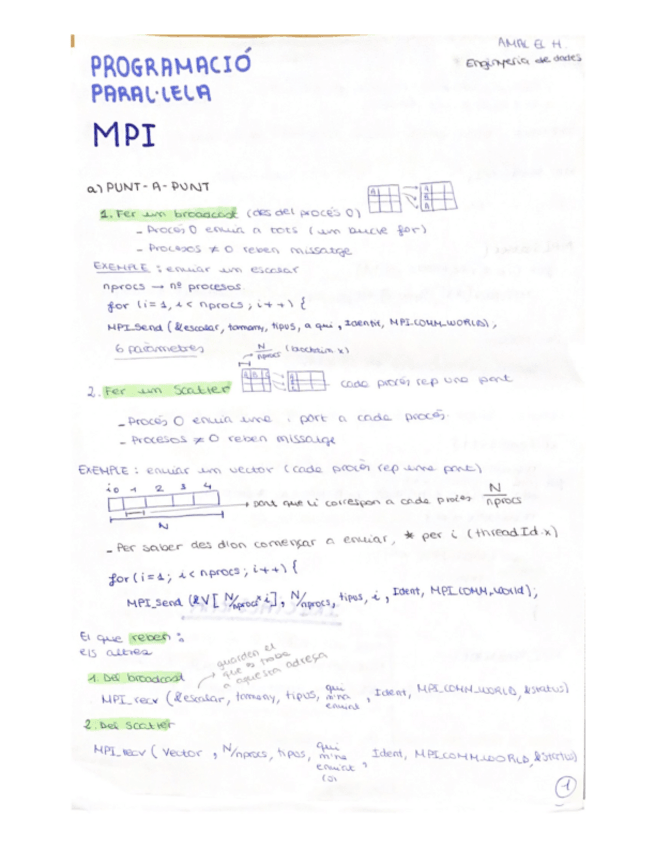 AMAL EL H
Enginyeria de dades
PROGRAMACIÓ
PARAL·LELA
MPI
a) PUNT-A-PUNT
1. Fer un broadcast (des del procés 0)
- Procés 0 envia a tots (un bucle for)
- Processos ≠ 0 reben missatge
EXEMPLE: enviar un escalar
nprocs → nº procesos
for (i=1, i< nprocs; i++) {
MPI_Send (&escalar, tamany, tipus, a qui, Identif, MPI_COMM_WORLD),
6 paràmetres
N/nprocs (blockdim x)
2. Fer un Scatter
cada procés rep una part
- Procés 0 envia una part a cada procés
- Procesos ≠ 0 reben missatge
EXEMPLE: enviar un vector (cada procés rep una part)
i0 1 2 3 4
→ part que li correspon a cada procés N/nprocs
N
- Per saber des d'on començar a enviar, * per i (threadId.x)
for (i=1; i< nprocs; i++) {
MPI_Send (&V[N/nproc*i], N/nprocs, tipus, i, Ident, MPI_COMM_World);
El que reben:
els altres
guarden el
que es troba
a aquesta adreça
1. Del broadcast
MPI_recv (&escalar, tamany, tipus, qui m'ha enviat, Ident, MPI_COMM_WORLD, &status)
2. Del Scatter
MPI_recv (Vector, N/nprocs, tipos, qui m'ha enviat (0), Ident, MPI_COMM_WORLD, &status)
1